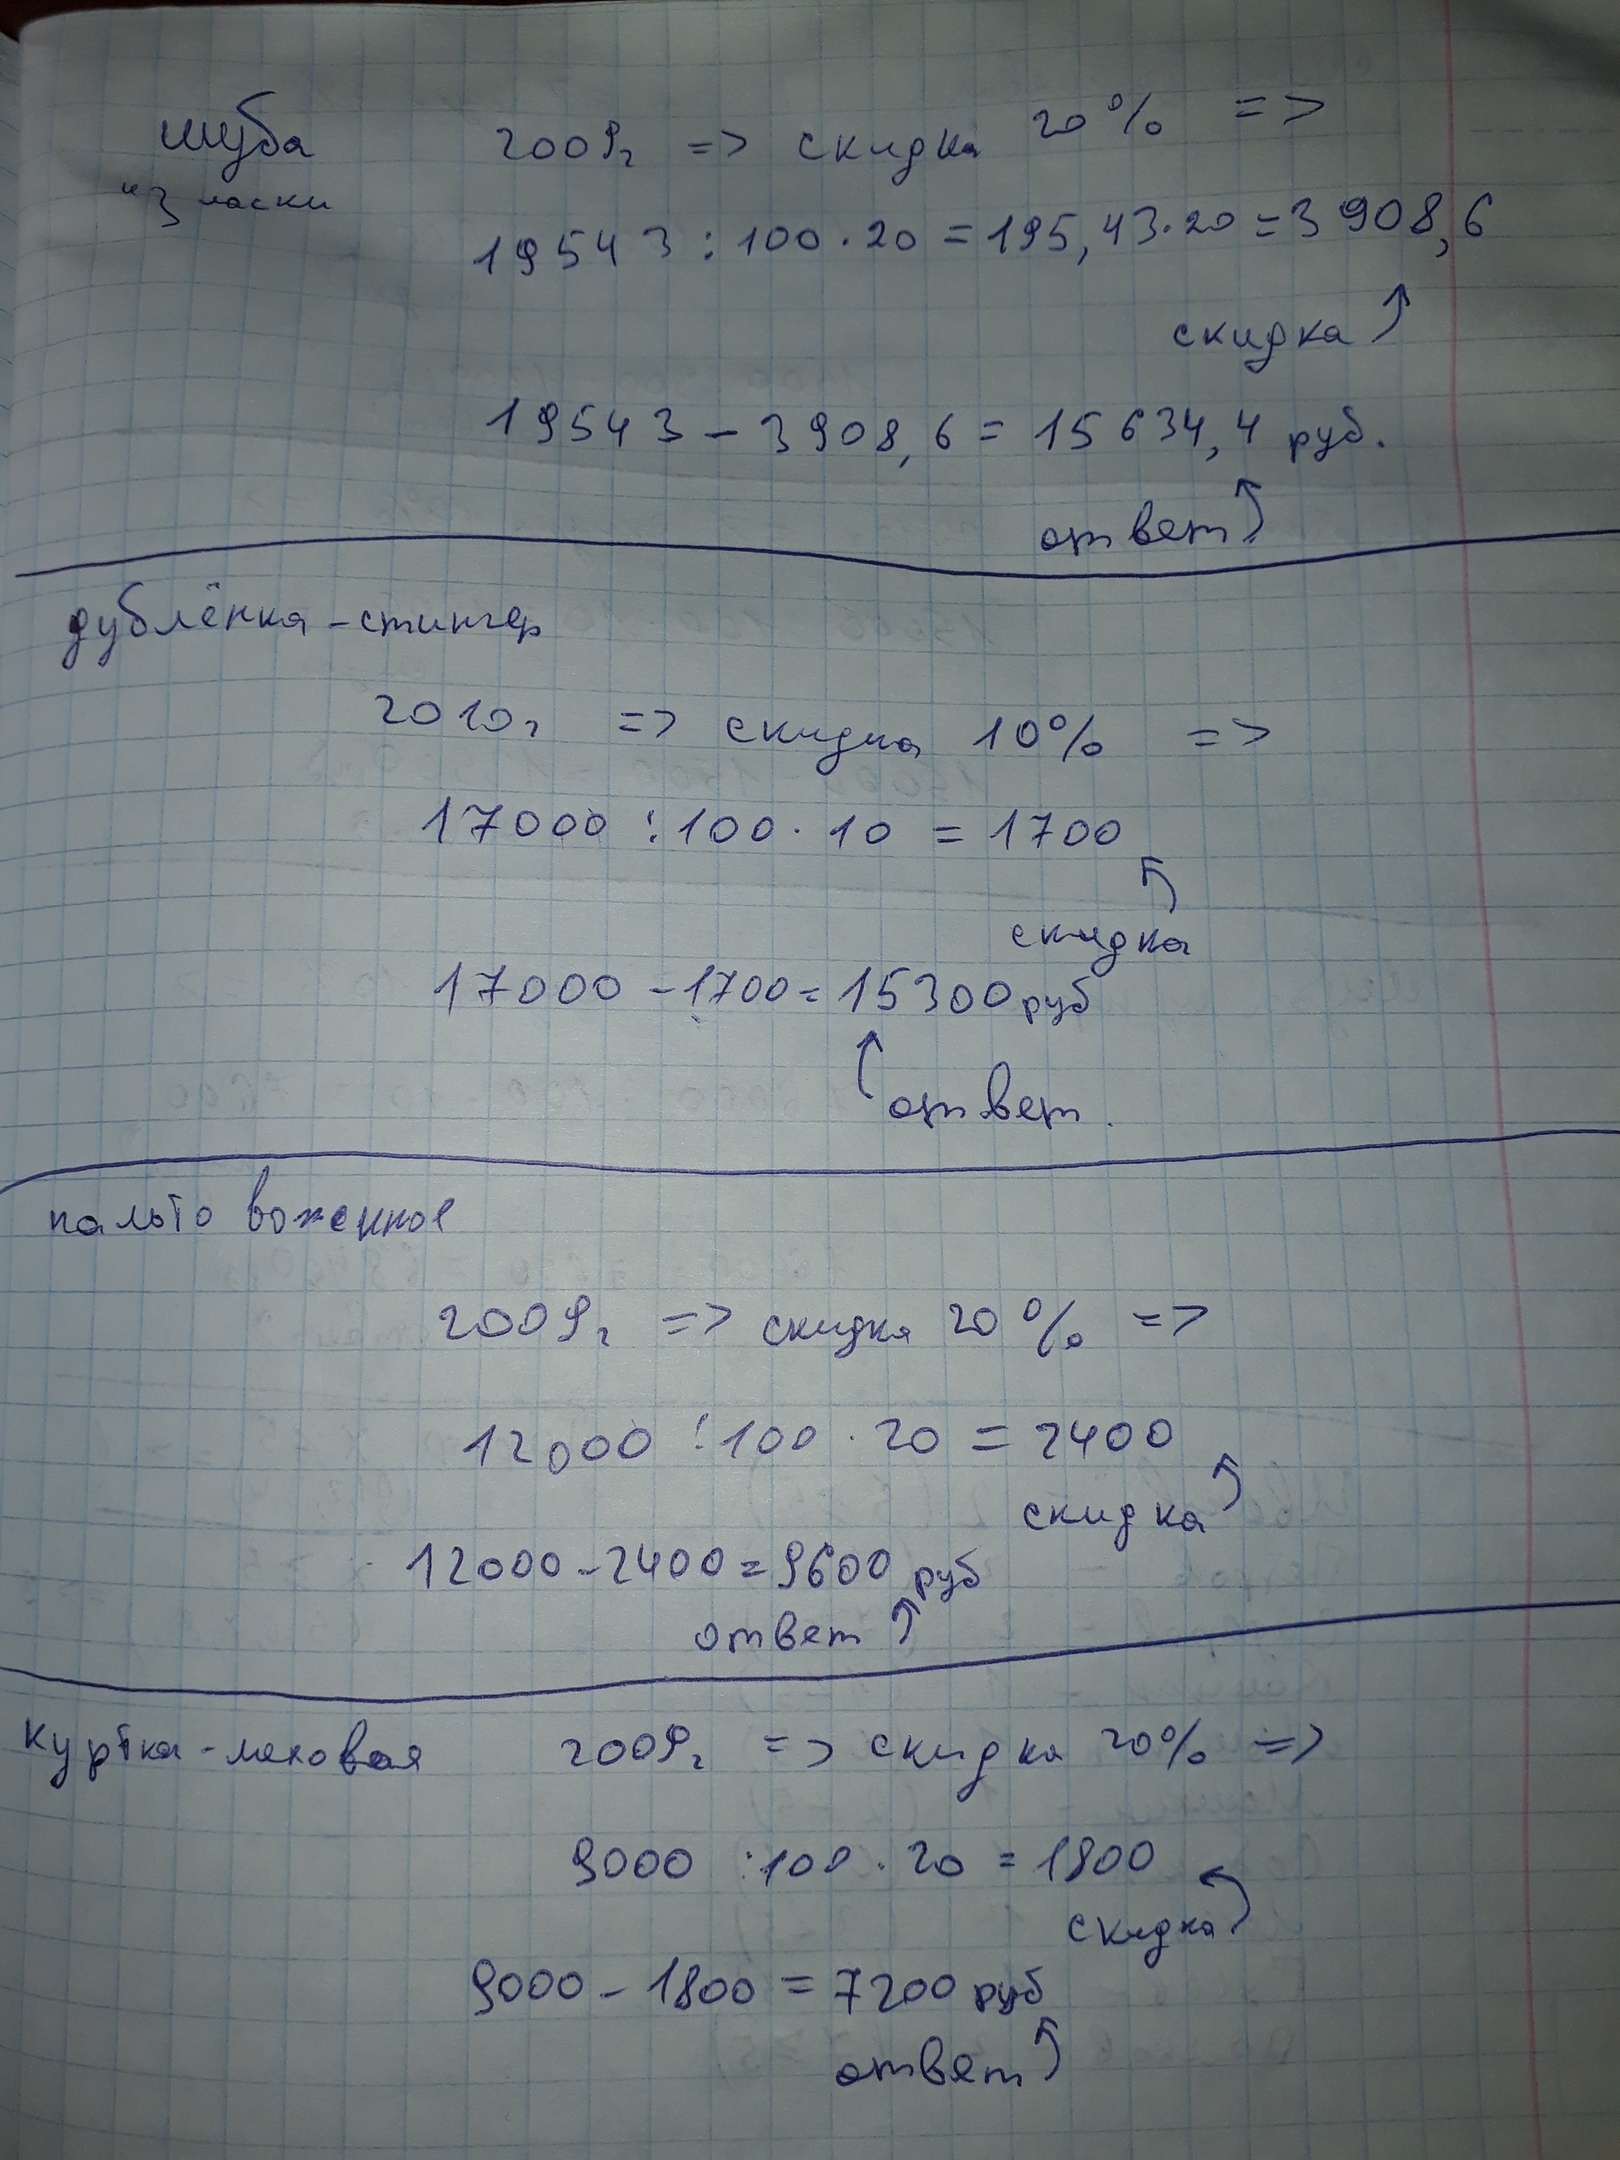 шуба 2009г => скидка 20% =>
из ласки
19543 : 100 · 20 = 195,43 · 20 = 3 908,6
скидка
19543 – 3908,6 = 15 634,4 руб.
ответ
дублёнка – стингер
2010г => скидка 10% =>
17000 : 100 · 10 = 1700
скидка
17000 – 1700 = 15300 руб
ответ.
пальто воженное
2009г => скидка 20% =>
12000 : 100 · 20 = 2400
скидка
12000 – 2400 = 9600 руб
ответ
куртка – меховая 2009г => скидка 20% =>
9000 : 100 · 20 = 1800
скидка
9000 – 1800 = 7200 руб
ответ